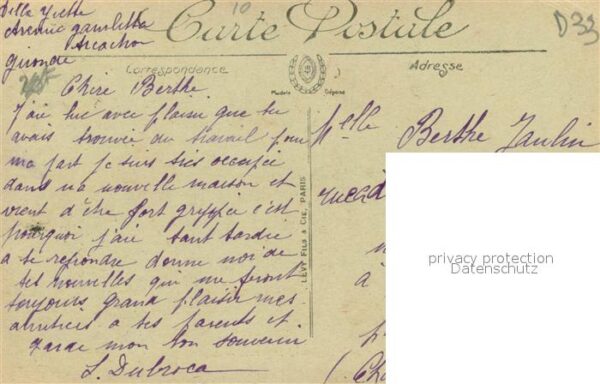 Villa Yvette
Avenue Gambetta
Arcachon
Gironde
10
Carte Postale
D33
Correspondance
Adresse
Modèle Déposé
LEVY FILS & CIE, PARIS
Chère Berthe
J'ai lue avec plaisir que tu
avais trouvée du travail pour
ma part je suis très occupée
dans ma nouvelle maison et
vient d'être fort grippée c'est
pourquoi j'aie tant tardée
a te repondre donne moi de
tes nouvelles qui me feront
toujours grand plaisir mes
amitiées a tes parents et
garde mon bon souvenir
S. Dubroca
Mlle Berthe Jaulin
rue
à
privacy protection
Datenschutz